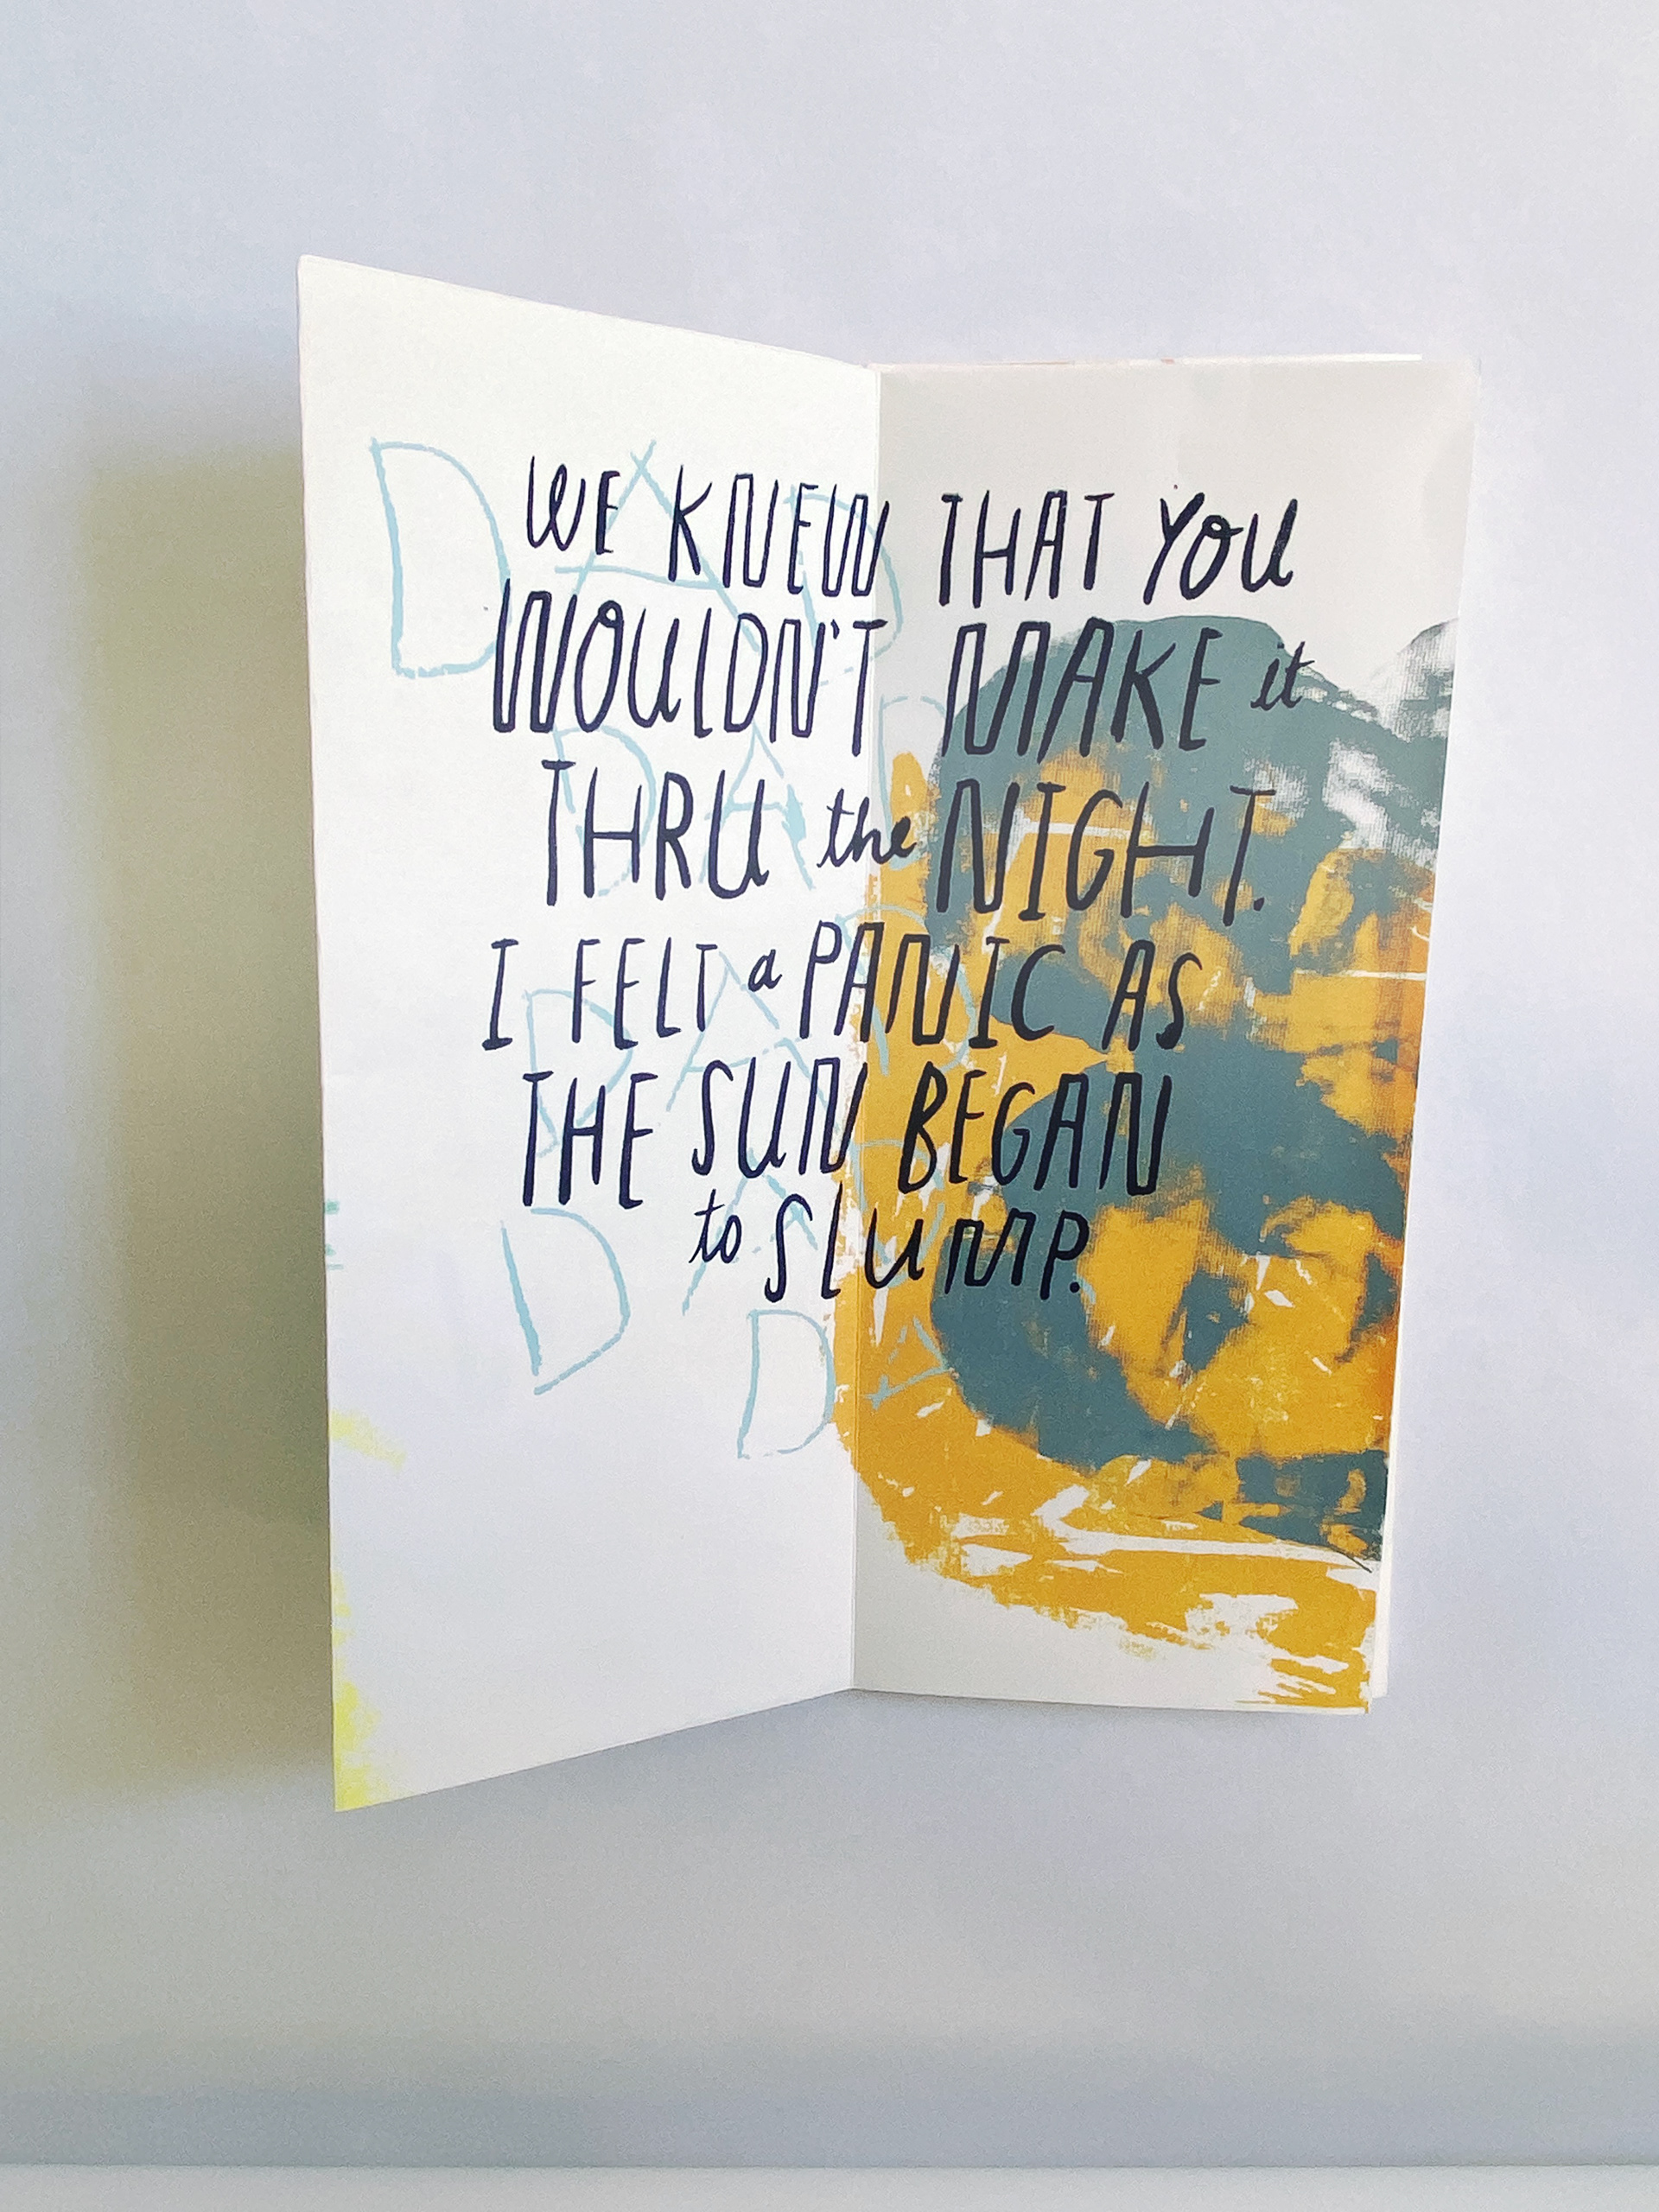 WE KNEW THAT YOU
WOULDN'T MAKE it
THRU the NIGHT.
I FELT a PANIC AS
THE SUN BEGAN
to SLUMP.
DAD
DAD
DAD
DAD
DAD